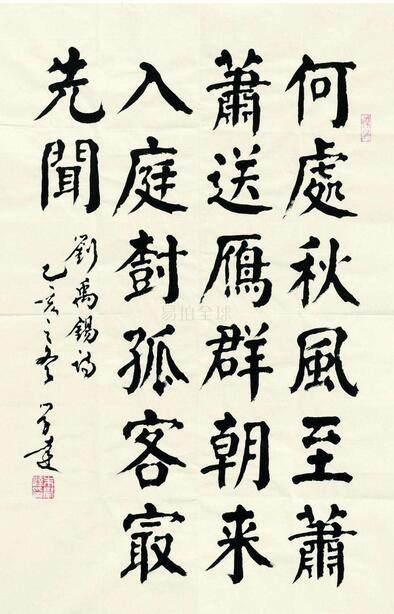 何處秋風至蕭
蕭送鴈群朝来
入庭尌孤客㝡
先聞
劉禹錫詩
己亥之冬
易拍全球